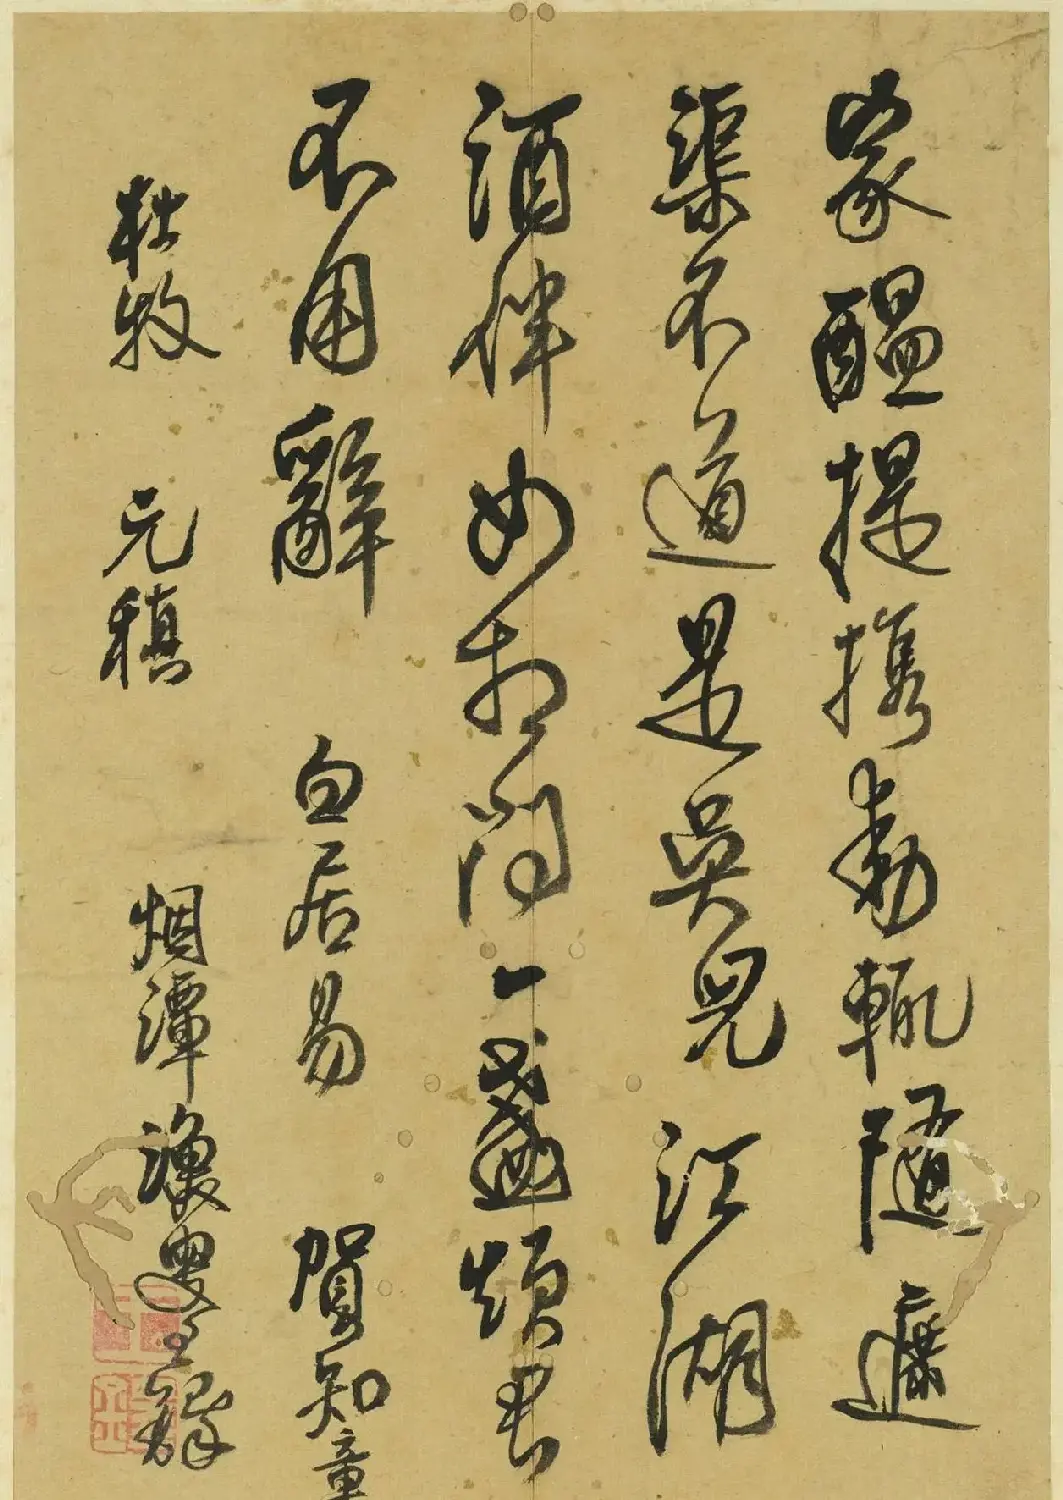 家醞提攜動輒隨遮
渠不道是吳兒江湖
酒伴如相問一盞煩君
不用辭 白居易 賀知章
杜牧 元稹 烟潭漁叟